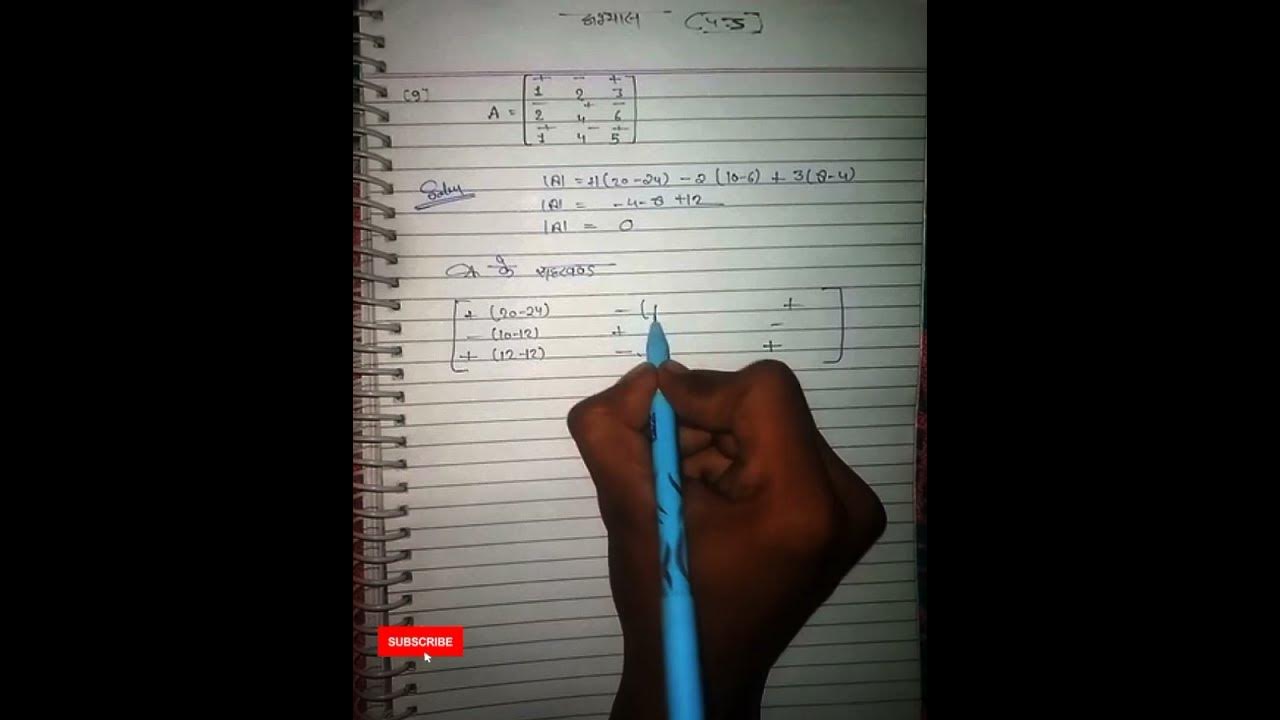 अभ्यास (4.5)
(9)
A = [ + - +
1 2 3
- + -
2 4 6
+ - +
1 4 5 ]
Soln |A| = +1(20-24) - 2(10-6) + 3(8-4)
|A| = -4-8+12
|A| = 0
A के सहखण्ड
[ + (20-24) - ( +
- (10-12) + -
+ (12-12) - + ]
SUBSCRIBE